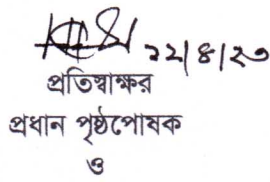 ২২/৪/২৩
প্রতিস্বাক্ষর
প্রধান পৃষ্ঠপোষক
ও